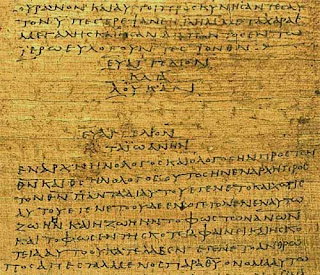 ΟΥΡΑΝΟΝ ΚΑΙ ΑΥΤΟΙ ΠΡΟϹΚΥΝΗϹΑΝΤΕϹ ΑΥ
ΤΟΝ ΥΠΕϹΤΡΕΨΑΝ ΜΕΤΑ ΧΑΡΑϹ
ΜΕΓΑΛΗϹ ΚΑΙ ΗϹΑΝ ΔΙΑ ΠΑΝΤΟϹ ΕΝ ΤΩ
ΙΕΡΩ ΕΥΛΟΓΟΥΝΤΕϹ ΤΟΝ ΘΝ
ΕΥΑΓΓΕΛΙΟΝ
ΚΑΤΑ
ΛΟΥΚΑΝ
ΕΥΑΓΓΕΛΙΟΝ
ΚΑΤΑ ΙΩΑΝΗΝ
ΕΝ ΑΡΧΗ ΗΝ Ο ΛΟΓΟϹ ΚΑΙ Ο ΛΟΓΟϹ ΗΝ ΠΡΟϹ ΤΟΝ
ΘΝ ΚΑΙ ΘϹ ΗΝ Ο ΛΟΓΟϹ ΟΥΤΟϹ ΗΝ ΕΝ ΑΡΧΗ ΠΡΟϹ
ΤΟΝ ΘΝ ΠΑΝΤΑ ΔΙ ΑΥΤΟΥ ΕΓΕΝΕΤΟ ΚΑΙ ΧΩΡΙϹ
ΑΥΤΟΥ ΕΓΕΝΕΤΟ ΟΥΔΕ ΕΝ Ο ΓΕΓΟΝΕΝ ΕΝ ΑΥΤΩ
ΖΩΗ ΗΝ ΚΑΙ Η ΖΩΗ ΗΝ ΤΟ ΦΩϹ ΤΩΝ ΑΝΩΝ
ΚΑΙ ΤΟ ΦΩϹ ΕΝ ΤΗ ϹΚΟΤΕΙΑ ΦΑΙΝΕΙ ΚΑΙ Η ϹΚΟ
ΤΕΙΑ ΑΥΤΟ ΟΥ ΚΑΤΕΛΑΒΕΝ ΕΓΕΝΕΤΟ ΑΝΘΡΩ
ΠΟϹ ΑΠΕϹΤΑΛΜΕΝΟϹ ΠΑΡΑ ΘΥ ΟΝΟΜΑ ΑΥΤΩ